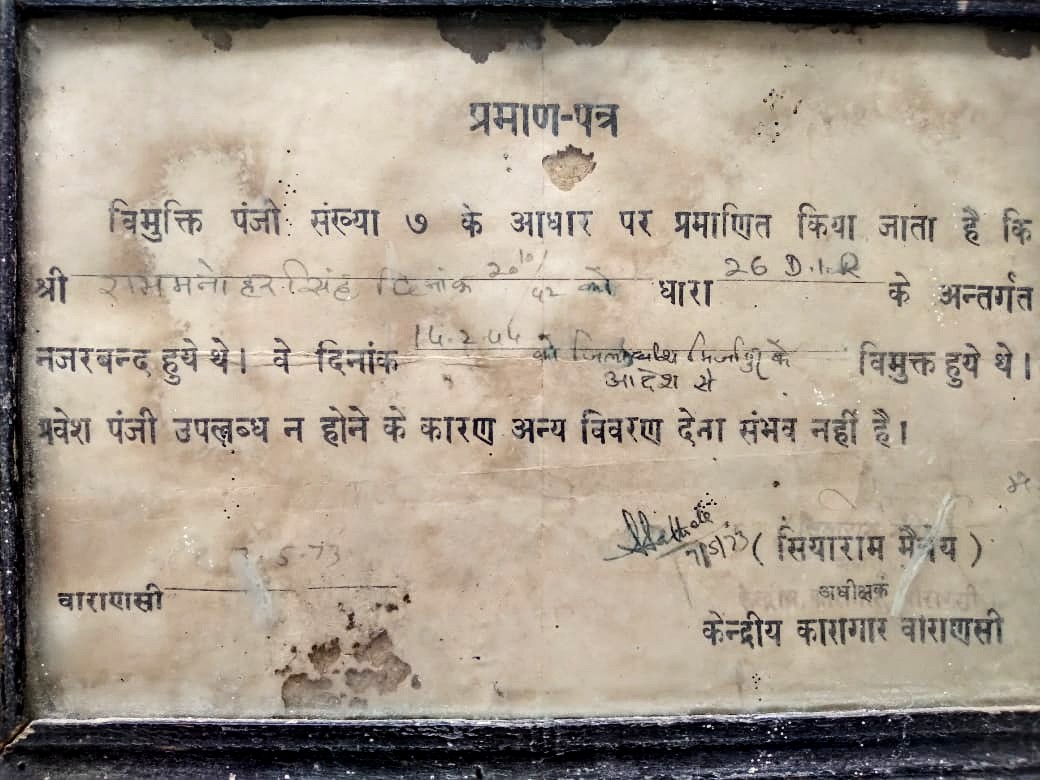 प्रमाण-पत्र
विमुक्ति पंजी संख्या ७ के आधार पर प्रमाणित किया जाता है कि
श्री राममनोहर सिंह दिनांक 20/10/42 को धारा 26 D.I.R के अन्तर्गत
नजरबन्द हुये थे। वे दिनांक 14.2.44 को के आदेश से विमुक्त हुये थे।
प्रवेश पंजी उपलब्ध न होने के कारण अन्य विवरण देना संभव नहीं है।
7/5/73 ( सियाराम मैत्रेय )
वाराणसी 7.5.73
अधीक्षक
केन्द्रीय कारागार वाराणसी